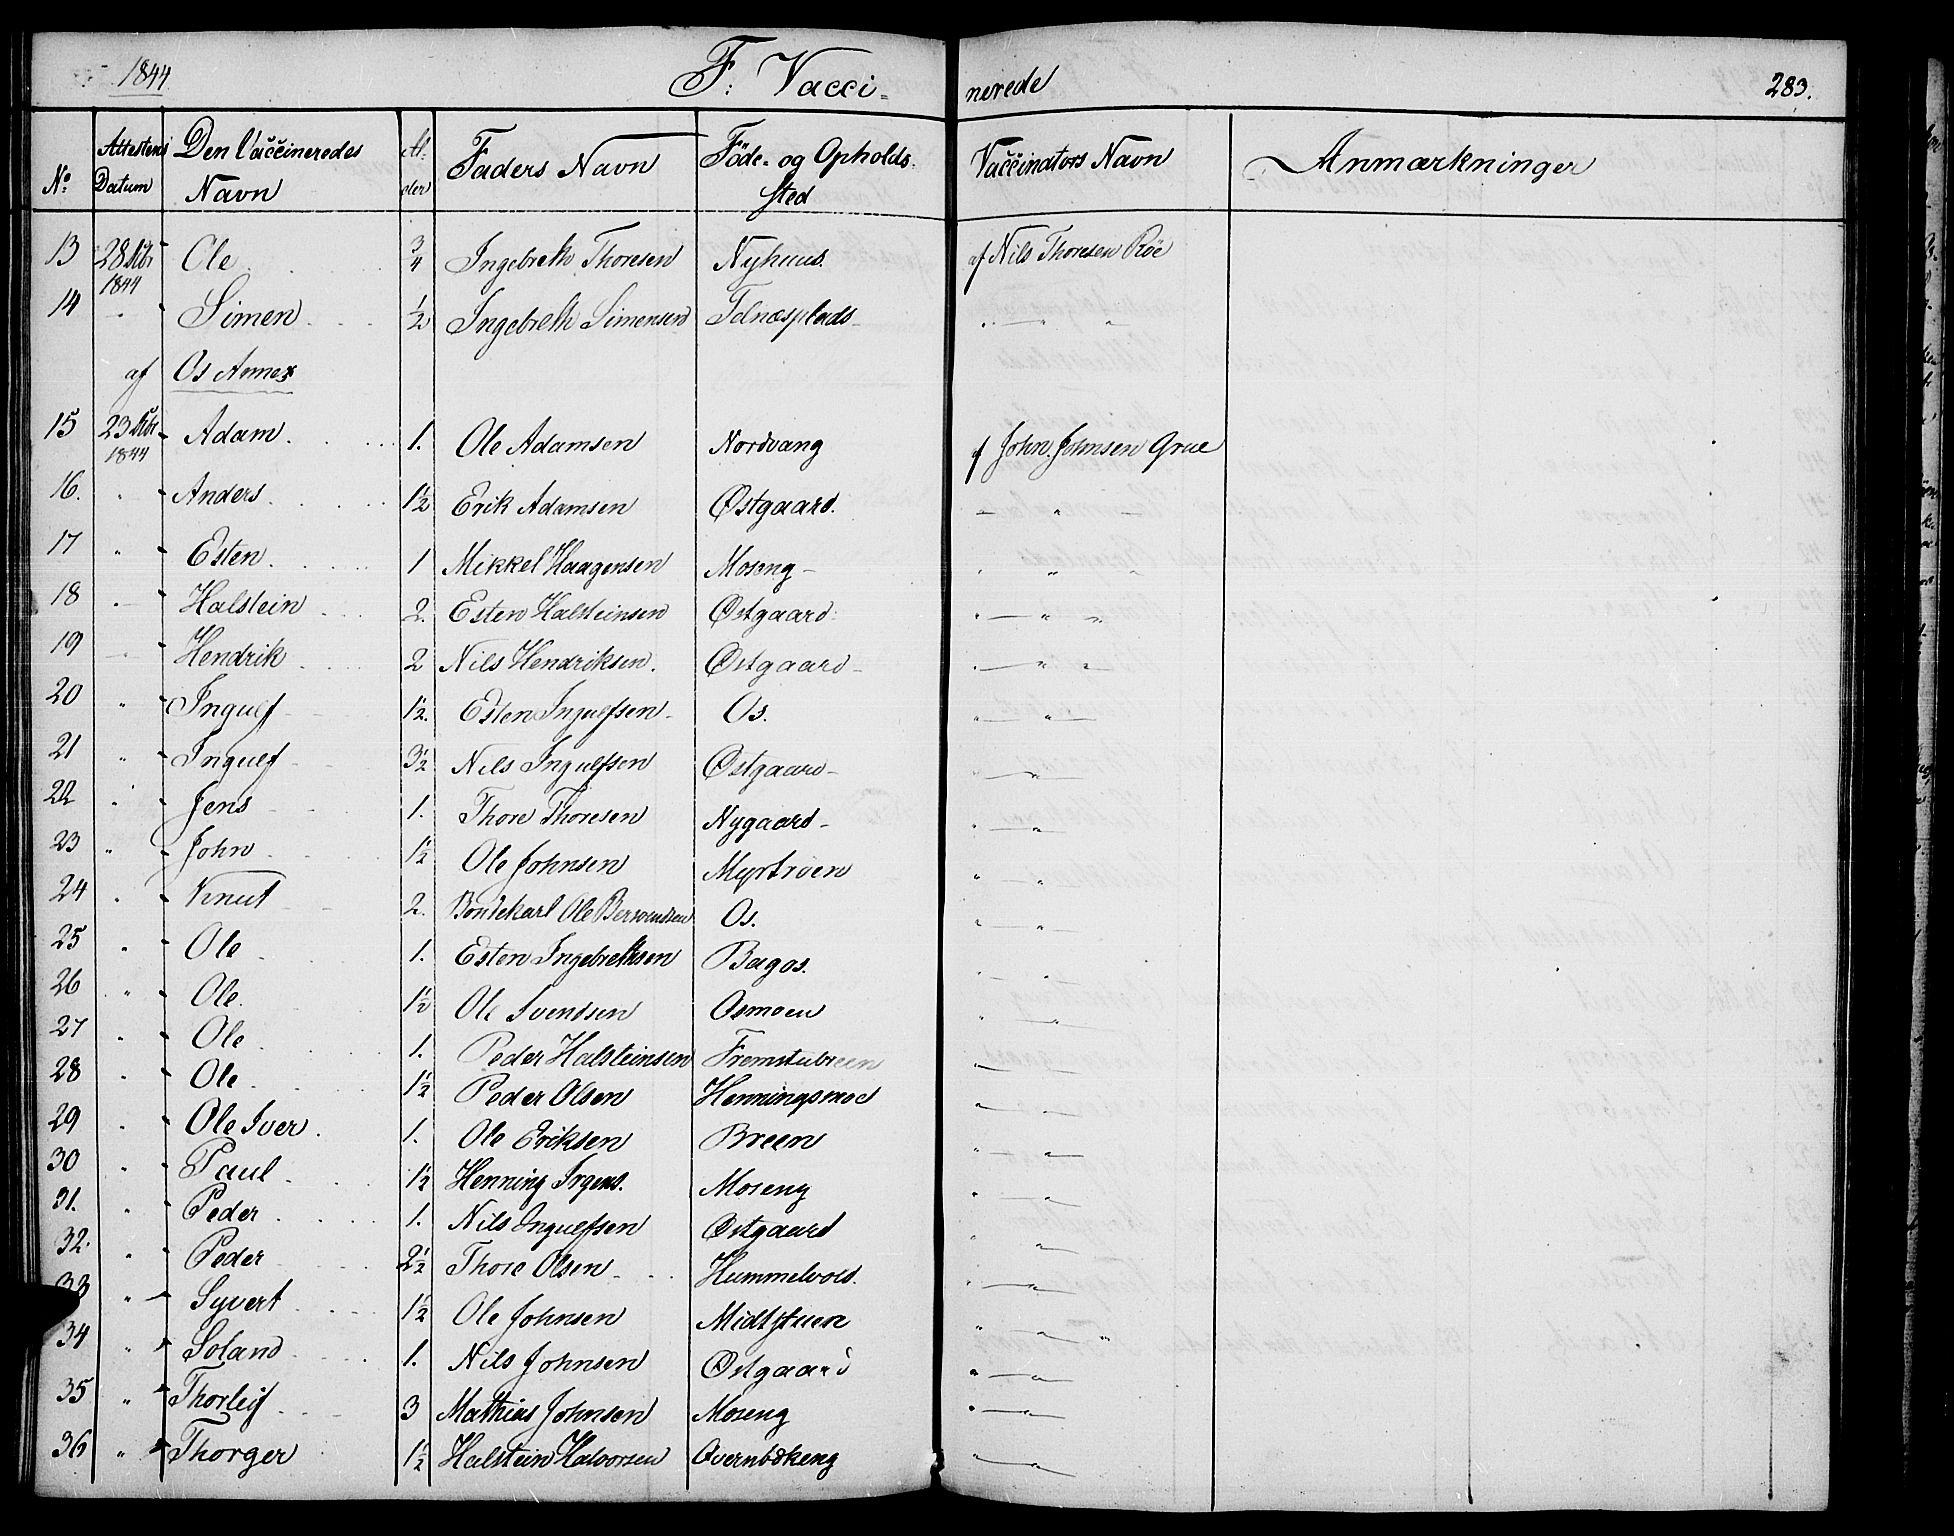 1844 F: Vacci- nerede 283.
No: Attestens Datum Den Vaccineredes Navn Al- der Faders Navn Føde- og Opholds- sted Vaccinators Navn Anmærkninger
13 28 1844 Ole 3/4 Ingebreth Thoresen Nyhuus. af Nils Thoresen Röe
14 " Simen 1/2 Ingebreth Simensen Tolnæsplads " — "
af Os Annex
15 23 1844 Adam. 1. Ole Adamsen Nordvang af John Johnsen Grue
16. " Anders. 1 1/2 Erik Adamsen Østgaard. — " —
17 " Esten. 1 Mikkel Haagensen Moseng - " " "
18 " Halstein 2. Esten Halsteinsen Østgaard " — " "
19 " Hendrik 2 Nils Hendriksen. Østgaard - " — " "
20 " Ingulf 1 1/2. Esten Ingulfsen Os. " — " —
21 " Ingulf 3 1/2 Nils Ingulfsen Østgaard - " — " —
22 " Jens 1. Thore Thoresen Nygaard - " — " —
23 " John 1 1/2 Ole Johnsen Myrtröen " — " —
24 " Knut 2. Bondekarl Ole Os. " — " —
25 " Ole 1. Esten Ingebrethsen Bagos. " — " —
26 " Ole. 1 1/2 Ole Svendsen Osmoen " — " —
27 " Ole 1. Peder Halsteinsen " — " —
28 " Ole 1 1/2 Peder Olsen Henningsmoe " — " —
29 " Ole Iver. 1. Ole Eriksen Breen " — " —
30 " Paul 1 1/2 Henning Irgens. Moseng " — " —
31. " Peder 1. Nils Ingulfsen Østgaard " — " —
32. " Peder 2 1/2 Thore Olsen Hummelvold. " — " —
33 " Syvert 1 1/2 Ole Johnsen Midtstuen " — " — "
34 " Soland 1. Nils Johnsen Østgaard " — " —
35 " Thorleif 3 Mathias Johnsen Moseng " — " —
36 " Thorger 1 1/2 Halstein Halvorsen " — " —